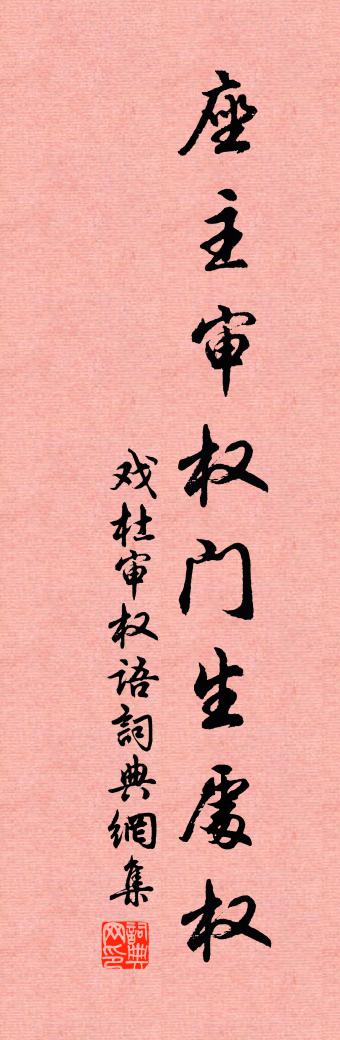 座主审权门生處权
戏杜审权语詞典網集
詞典
网印